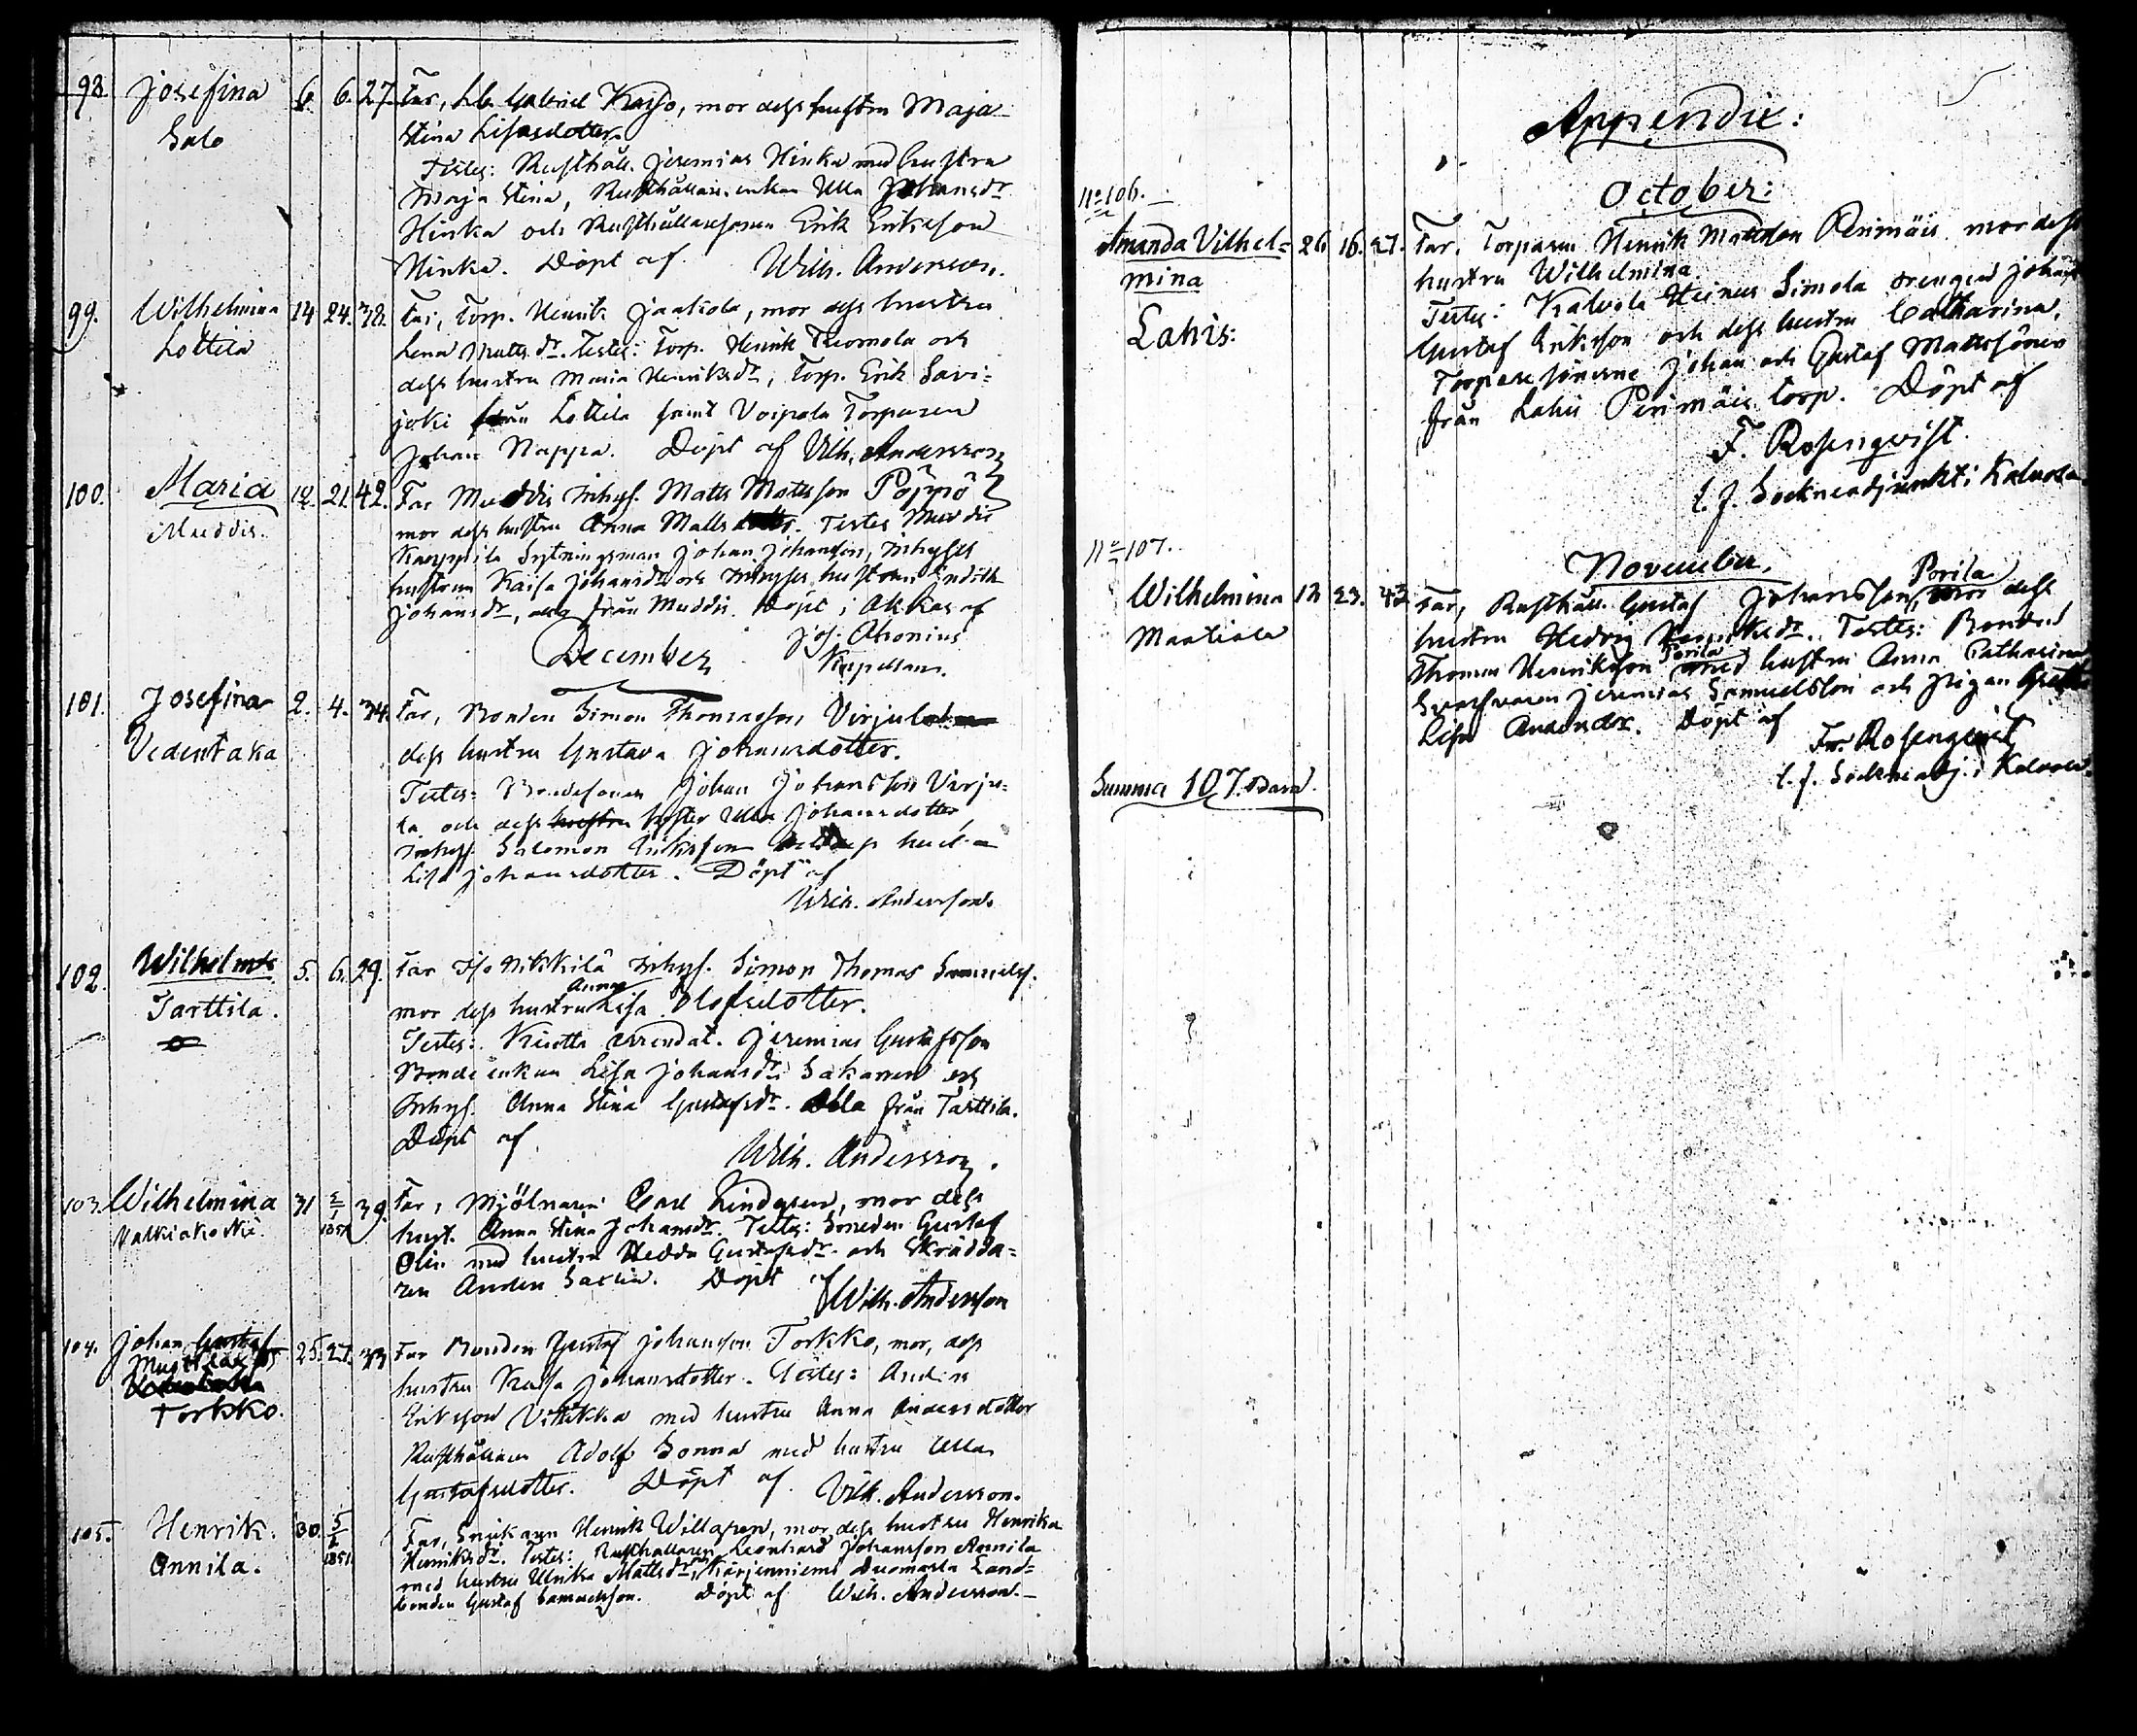 98. Josefina 6. 6. 27. Far, Lb. Gabriel Kaiso, mor dess hustru Maja
Salo Stina Lisasdotter.
Testes: Rusthåll. Jeremias Hinka med hustru
Maja Stina, Rusthållare enkan Ulla Johansdr
Hinka och Rusthållaresonen Erik Eriksson
Hinka. Döpt af Wilh. Andersson.
99. Wilhelmina 14 24. 38. Far, Torp. Henrik Jaakola, mor dess hustru
Lottila Lena Mattsdr. Testes: Torp. Henrik och
dess hustru Maria Henriksdr, Torp. Erik Savi=
joki från Lottila samt Voipala Torparen
Johan Nappa. Döpt af Vilh. Andersson
100. Maria 12. 21. 42. Far Muddis Inhys. Matts Mattsson Pöppö
Muddis. mor dess hustru Anna Matts. Testes Muddis
Kaappila Sytningsman Johan Johansson, Inhyses
hustrun Kaisa Johansdr och Inhyses hustrun
Johansdr, alla från Muddis. Döpt i Akkas af
Jos. Ahonius
December Kapellan.
101. Josefina 2. 4. 34. Far, Bonden Simon Thomasson Virju
Vedentaka dess hustru Gustava Johansdotter.
Testes: Bondesonen Johan Johansson Virju=
la och dess hustru syster Ulla Johansdotter
Inhys. Salomon Eriksson
Lisa Johansdotter. Döpt af
Wilh. Andersson.
102. Wilhelm 5. 6. 29. Far Iso Nikkilä Inhys. Simon Thomas Samuelss.
Anna
Tarttila. mor dess hustru Lisa Olofsdotter.
Testes: arrendat. Jeremias Gustafsson
Bonde enkan Lisa Johansdr Sakanen och
Inhys. Anna Stina Gustafsdr. alla från Tarttila.
Döpt af
Wilh. Andersson.
103. Wilhelmina 31 2/1 1851 39. Far, Mjölnaren Carl Lindgren, mor dess
Valkiakoski. hust. Anna Stina Johansdr. Testes: Smeden Gustaf
Olin med hustru Hedda Gustafsdr och Skrädda=
ren Anders. Döpt af
Wilh. Andersson
104. Johan Gustaf 25. 27. 33 Far Bonden Gustaf Johansson Torkko, mor, dess
hustru Kaisa Johansdotter. Testes: Anders
Torkko. Eriksson Vittikka med hustru Anna Andersdotter
Rusthållaren Adolf Sonna med hustru Ulla
Gustafsdotter. Döpt af Vilh. Andersson.
105. Henrik. 30. 5/1 1851 Far, Snickaren Henrik Willgren, mor dess hustru Henrika
Annila. Henriksdr. Testes: Rusthållaren Leonhard Johansson Annila
med hustru Ulrika Mattsdr, Kärjenniemi Land=
bonden Gustaf Samuelsson. Döpt af Wilh. Andersson.
Appendix:
October:
No 106.
Amanda Vilhel= 26. 16. 27. Far. Torparen Henrik Mattsson Perimäis mor dess
mina hustru Wilhelmina.
Lahis: Testes: Kalvola Heinus Simola drengen Johan
Gustaf Eriksson och dess hustru Catharina,
Torparesönerne Johan och Gustaf Mattssöner
från Lahis Perimäis torp. Döpt af
F. Rosenqvist.
t. f. Sockneadjunkt i Kalvola
November.
No 107. Porila
Wilhelmina 12 23. 43 Far, Rusthåll. Gustaf Johansson, mor dess
Maatiala hustru Hedvig Henriksdr. Testes: Bonden
Porila
Thomas Henriksson med hustru Anna Catharina
Jeremias Samuelsson och Pigan Greta
Lisa Andersdr. Döpt af
Fr. Rosenqvist
t. f. Sockneadj. i Kalvola.
Summa 107. Barn.